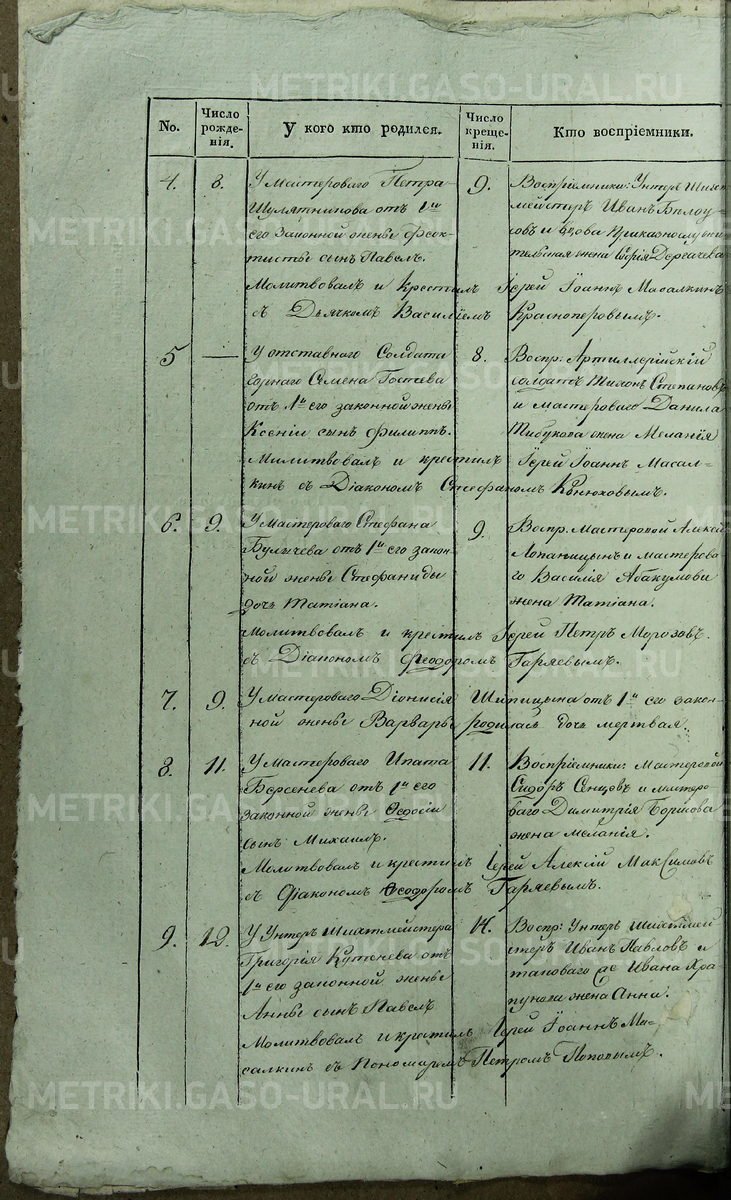 METRIKI.GASO-URAL.RU
No.
Число рожде-нія.
У кого кто родился.
Число креще-нія.
Кто воспріемники.
4. 8. У Мастероваго Петра
Шулятникова отъ 1й
его законной жены Феок-
тисты сынъ Павелъ.
9. Воспріемники: Унтеръ Шихт-
мейстеръ Иванъ Бѣлоу-
совъ и вдова Приказнослужи-
тельская жена
Молитвовалъ и Крестилъ Іерей Іоаннъ Масалкинъ
съ Дьячкомъ Василіемъ Красноперовымъ.
5 — У отставнаго Солдата
горнаго Семена Гостева
отъ 1й его законной жены
Ксеніи сынъ Филиппъ.
8. Воспр: Артиллерійскій
солдатъ Тихонъ Степановъ
и мастероваго Данила
жена Меланія
Молитвовалъ и крестилъ Іерей Іоаннъ Масал-
кинъ съ Діакономъ Стефаномъ Конюховымъ.
6. 9. У Мастероваго Стефана
Булычева отъ 1й его закон-
ной жены Стефаниды
дочь Татіана.
9. Воспр. Мастеровой Алексѣй
и мастерова-
го Василія Абакумова
жена Татіана.
Молитвовалъ и крестилъ Іерей Петръ Морозовъ
съ Діакономъ Феодоромъ Гаряевымъ.
7. 9. У мастероваго Діонисія Шипицына отъ 1й его закон-
ной жены Варвары родилась дочь мертвая.
8. 11. У Мастероваго Ипата
Берсенева отъ 1й его
законной жены Ѳедосіи
сынъ Михаилъ.
11. Воспріемники: Мастеровой
Сидоръ и мастеро-
ваго Димитрія
жена Меланія.
Молитвовалъ и крестилъ Іерей Алексій Максимовъ
съ Діакономъ Ѳеодоромъ Гаряевымъ.
9. 12. У Унтеръ Шихтмейстера
Григорія отъ
1й его законной жены
Анны сынъ Павелъ
14. Воспр: Унтеръ Шихтмей-
стеръ Иванъ Павловъ и
таковаго же Ивана Хра-
жена Анна.
Молитвовалъ и крестилъ Іерей Іоаннъ Ма-
салкинъ съ Пономаремъ Петромъ Поповымъ.